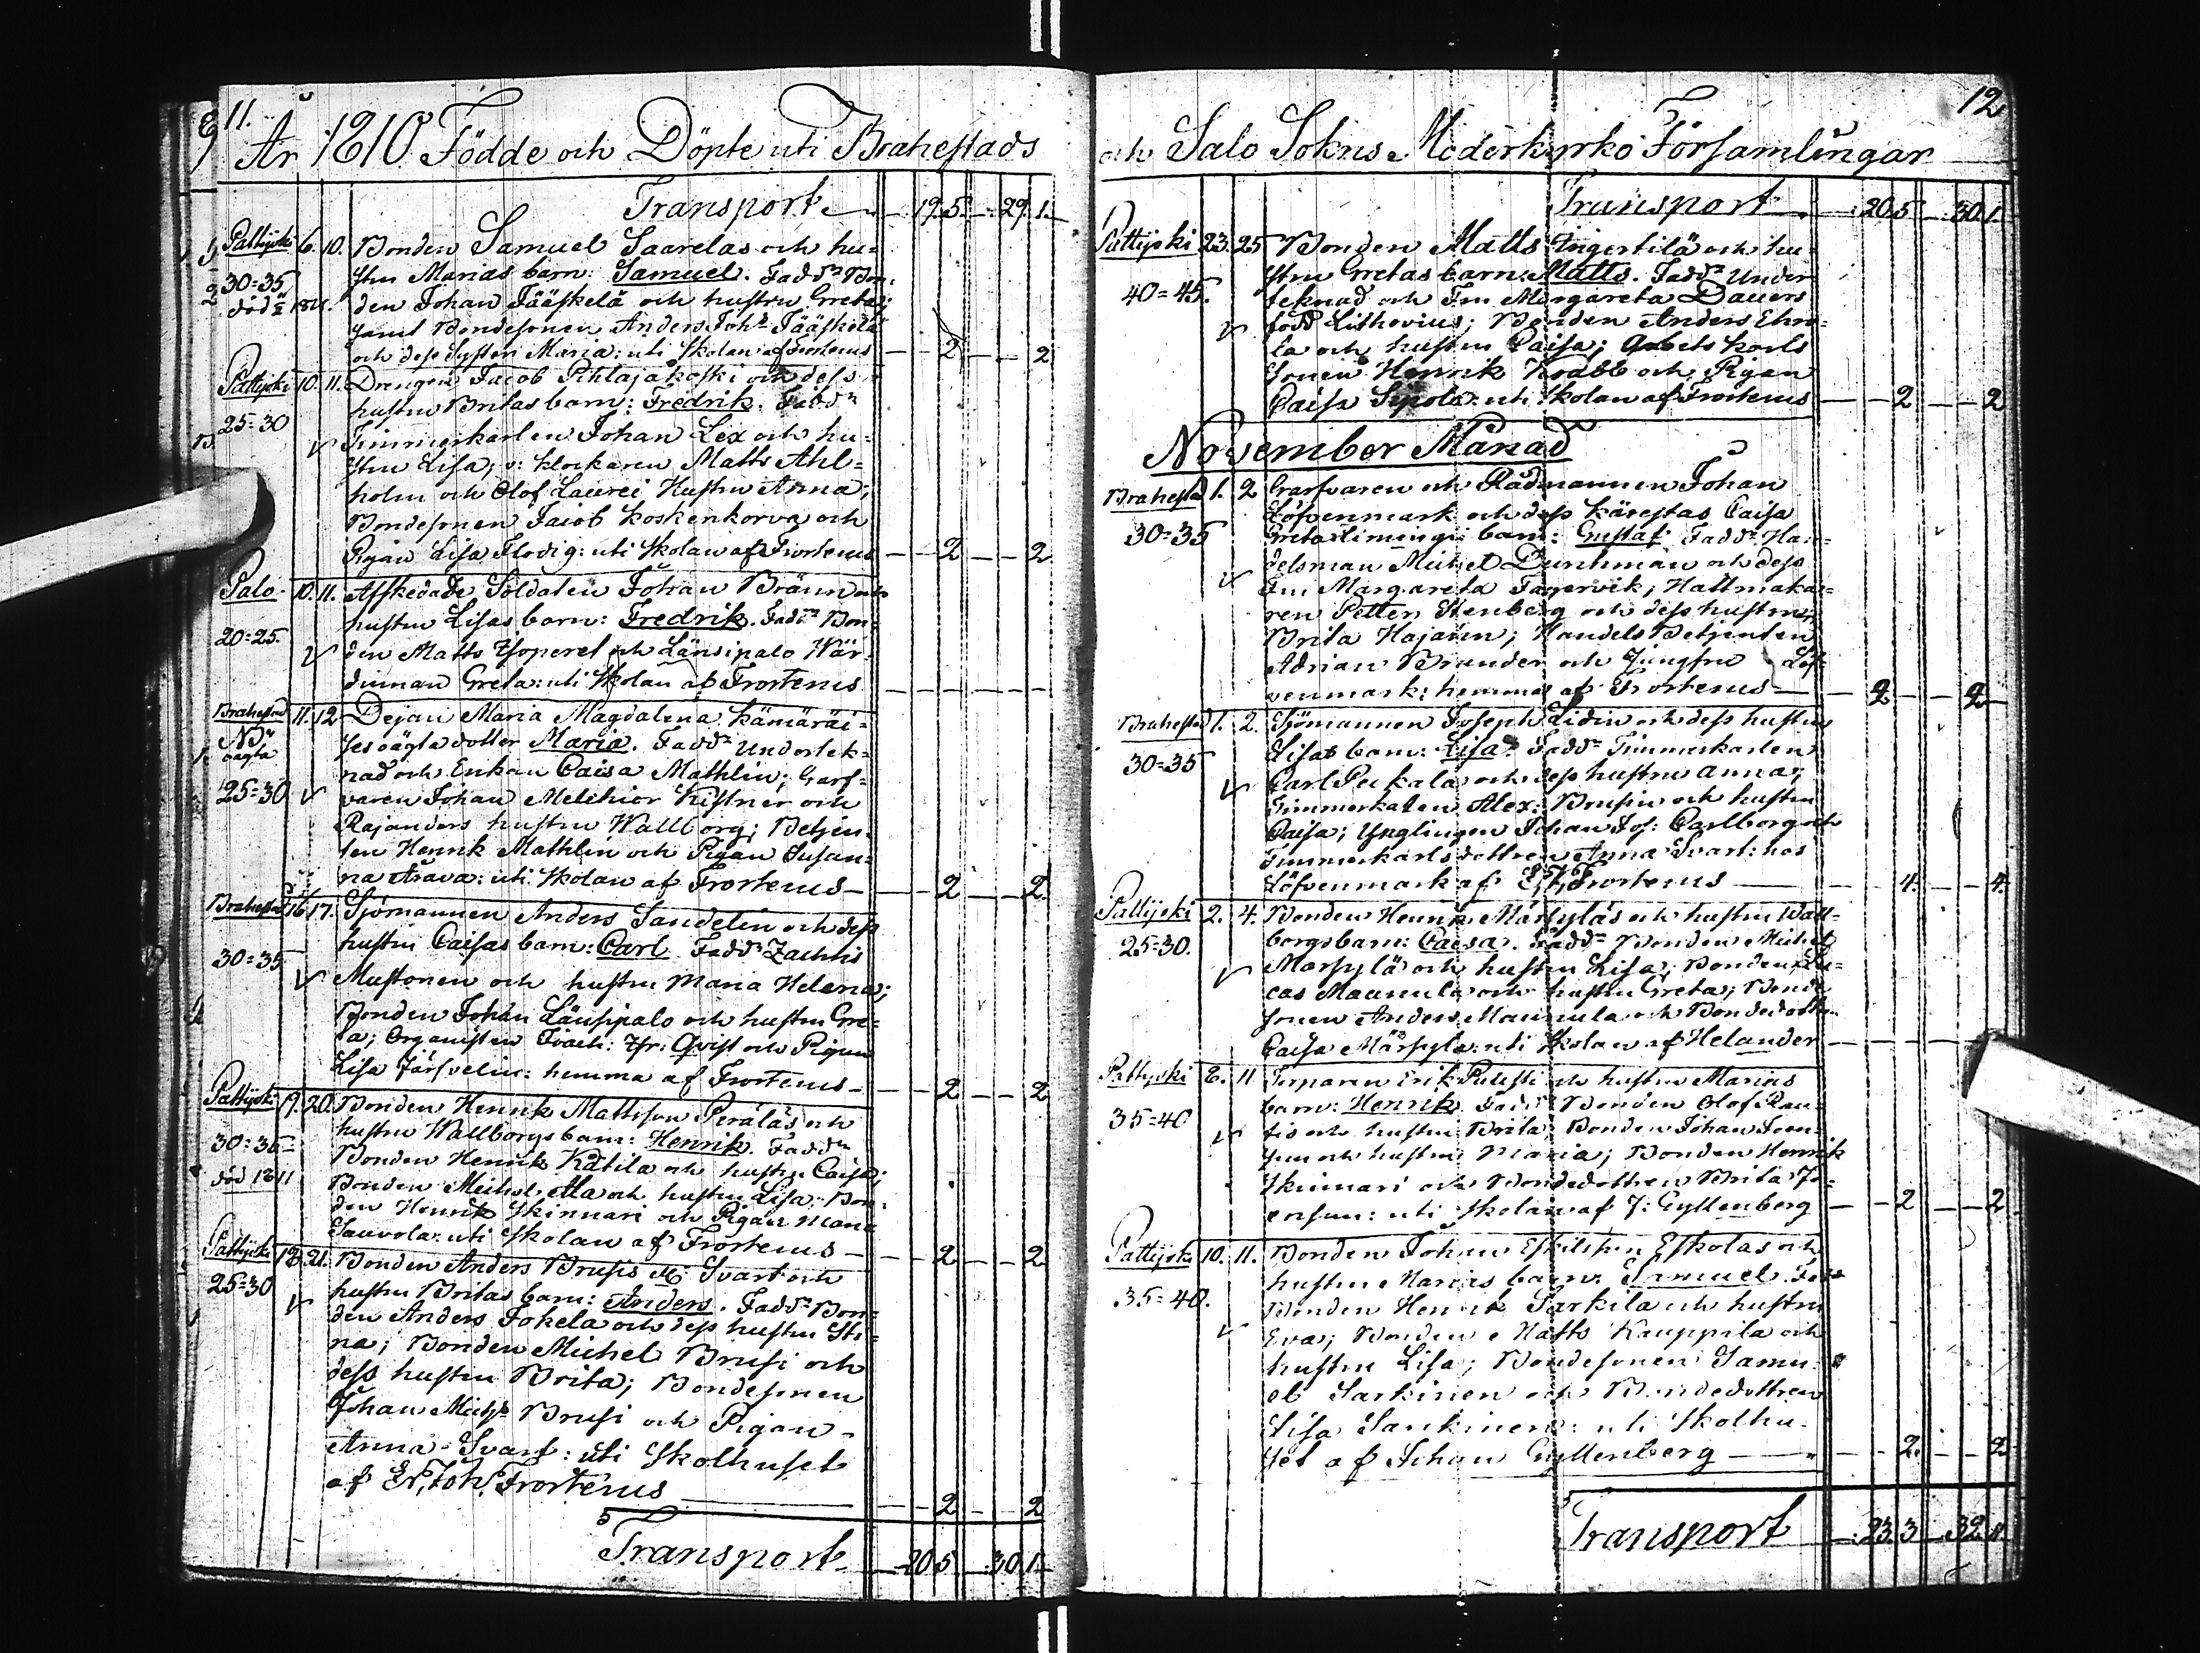 11.
År 1810 Födde och Döpte uti Brahestads
Transport 19. 5. 29. 1.
Pattijoki 6. 10. Bonden Samuel Saarelas och hu=
30=35 strn Marias barn: Samuel. Fadd:r Bon=
död 1811. den Johan Jääskelä och hustru Greta;
samt Bondesonen Anders Joh:s Jääskelä
och dess Systen Maria: uti Skolan af Frosterus 2 2
Pattijoki 10. 11. Drengen Jacob Pihlajakoski och dess
hustru Britas barn: Fredrik. Fadd:r
25=30 Timmerkarlen Johan Lex och hu=
stru Lisa; v: klockaren Matts Ahl=
holm och Olof Laurei Hustru Anna;
Bondesonen Jacob Koskenkorva och
Pigan Lisa Flodig: uti Skolan af Frosterus 2 2
Palo 10. 11. Afskedade Soldaten Johan Bränn och
hustru Lisas barn: Fredrik. Fadd:r Bon=
20=25. den Matts och Länsipalo Wär=
dinnan Greta: uti Skolan af Frosterus
Brahestad 11. 12 Dejan Maria Magdalena Kämäräi=
oägta ses oägta dotter Maria. Fadd:r Undertek=
nad och Enkan Caisa Mathlin; Garf=
25=30 varen Johan Melchior Kistner och
Rajanders hustru Wallborg; Betjen=
ten Henrik Mathlin och Pigan Susan=
na Arava: uti Skolan af Frosterus 2 2
Brahestad 16 17. Sjömannen Anders Sandelin och dess
hustru Caisas barn: Carl. Fadd:r Zachris
30=35 Mustonen och hustru Maria Helena;
Bonden Johan Länsipalo och hustru Gre=
ta; Organisten Qvist och Pigan
Lisa Järfvelin: hemma af Frosterus 2 2
Pattijoki 19. 20. Bonden Henrik Mattsson Peräläs och
hustru Wallborgs barn: Henrik. Fadd:r
30=35 Bonden Henrik Kätilä och hustru Caisa;
död 1811 Bonden Michel Ala och hustru Lisa; Bon=
den Henrik Skinnari och Pigan Maria
Sauvola: uti Skolan af Frosterus 2 2
Pattijoki 18. 21. Bonden Anders Brusis Svart och
25=30 hustru Britas barn: Anders. Fadd:r Bon=
den Anders Jokela och dess hustru Sti=
na; Bonden Michel Brusi och
dess hustru Brita; Bondesonen
Johan Mich:s Brusi och Pigan
Anna Svart: uti Skolhuset
af Er. Joh. Frosterus 2 2
Transport 20 5 30 1
12
och Salo Sokns Moderkyrko Församlingar
Transport 20. 5 30. 1.
Pattijoki 23. 25 Bonden Matts Ingertilä och hu=
stru Gretas barn: Matts. Fadd:r Under
40=45. teknad och Fru Margareta Dauers
född Lithovius; Bonden Anders Ehro=
la och hustru Caisa; Arbets karls
sonen Henrik Krabb och Pigan
Caisa Sipola: uti Skolan af Frosterus 2 2
November Månad
Brahestad 1. 2 Garfvaren och Rådmannen Johan
Löfvenmark och dess käresta Caisa
30=35 Greta Limingi barn: Gustaf. Fadd:r Han=
delsman Michel Dunckman och dess
Fru Margareta Fagervik; Hattmaka=
ren Petter Stenberg och dess hustru
Brita Hajarin; Handels Betjenten
Adrian Brander och Jungfru Löf=
venmark: hemma af Frosterus 2 2
Brahestad 1. 2. Sjömannen Joseph Lidin och dess hustru
Lisas barn: Lisa. Fadd:r Timmerkarlen
30=35 Carl Pukala och dess hustru Anna;
Timmerkarlen Alex: Brusin och hustru
Caisa; Ynglingen Johan Jos: Carlborg och
Timmerkarlsdottren Anna Svart: hos
Löfvenmark af Frosterus 4. 4.
Pattijoki 2. 4. Bonden Henrik Märsyläs och hustru Wall=
borgs barn: Caisa. Fadd:r Bonden Michel
25=30. Märsylä och hustru Lisa; Bonden Lu=
cas Maunula och hustru Greta; Bonde
sonen Anders Maunula och Bondedottren
Caisa Märsylä: uti Skolan af Helander
Pattijoki 8. 11 Torparen Erik och hustru Marias
barn: Henrik. Fadd:r Bonden Olof Rau=
35=40 tio och hustru Brita; Bonden Johan
och hustru Maria; Bonden Henrik
Skinnari och Bondedottren Brita
: uti Skolan af J: Gyllenberg 2 2
Pattijoki 10. 11. Bonden Johan Eskilsson Eskolas och
hustru Marias barn: Samuel. Fadd:r
35=40. Bonden Henrik Särkilä och hustru
Eva; Bonden Matts Kauppila och
hustru Lisa; Bondesonen Samu=
el Sarkinen och Bondedottren
Lisa Sarkinen: uti Skolhu=
set af Johan Gyllenberg 2. 2
Transport 23. 3 32. 11.